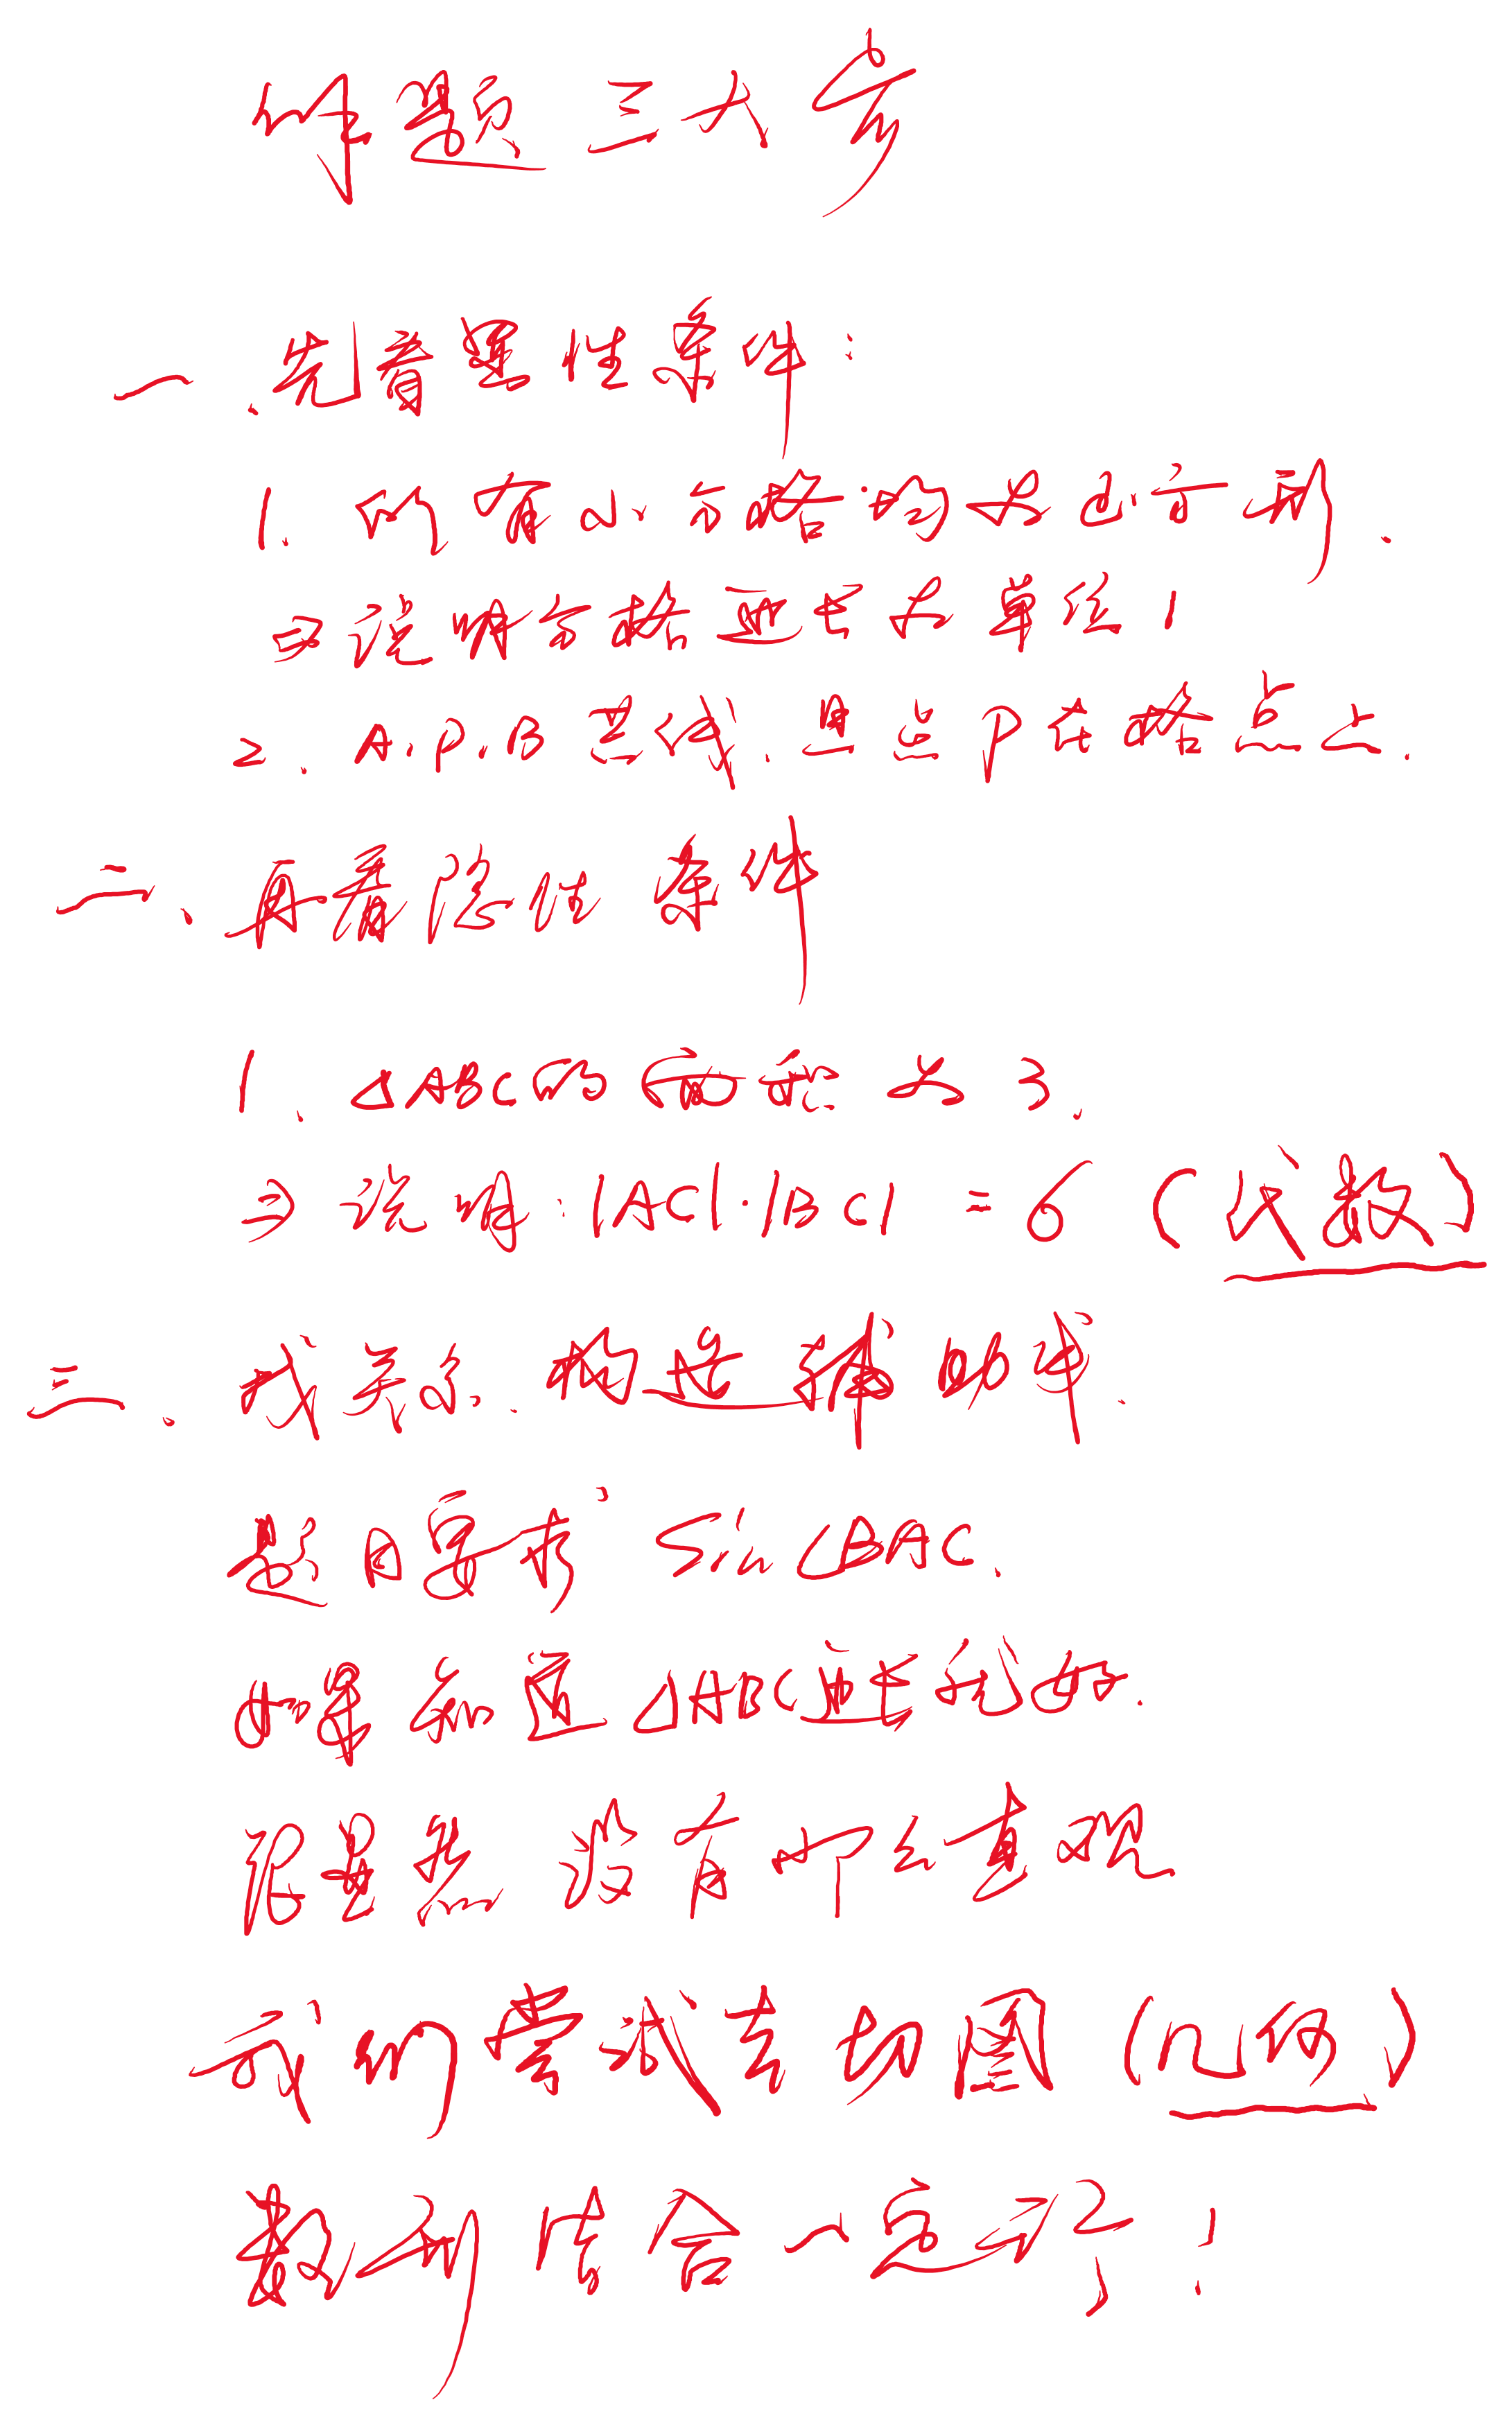 解题三大步
一、先看显性条件:
1. 所有小方格均为正方形.
⇒说明方格边长为单位1
2. A.P.B共线.且点P在格点上.
二、再看隐性条件
1. △ABC的面积为3.
⇒说明:|AC|·|BC|=6 (代数)
三、找关系.构造辅助线.
题目要求 Sin∠BAC.
如果知道△ABC边长就好.
但显然没有那么直观
我们尝试去切图 (几何)
数形结合一定行!